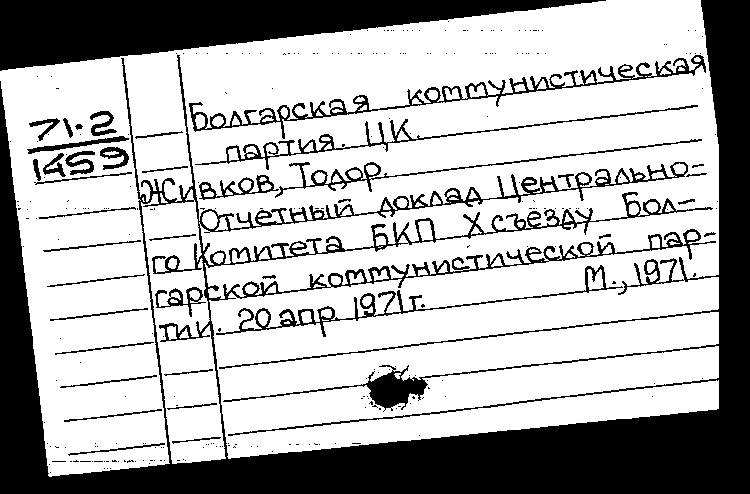 71.2
1459
Болгарская коммунистическая
партия. ЦК.
Живков, Тодор.
Отчетный доклад Центрально-
го Комитета БКП X съезду Бол-
гарской коммунистической пар-
тии. 20 апр. 1971 г. М., 1971.